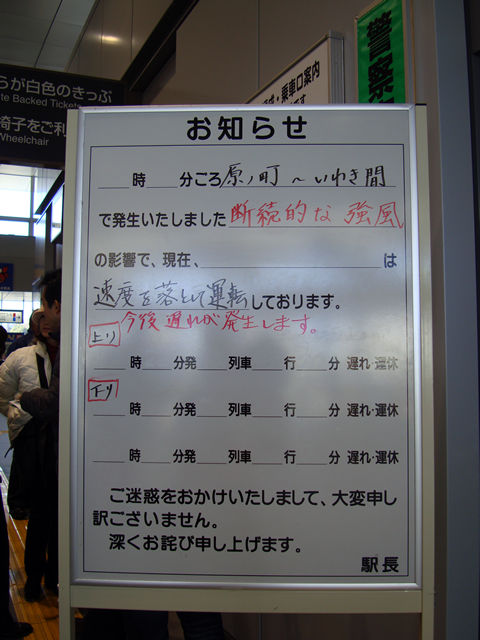 らが白色のきっぷ
te Backed Tickets
椅子をご利
Wheelchair
乗車口案内
警察
お知らせ
時 分ごろ原ノ町～いわき間
で発生いたしました断続的な強風
の影響で、現在、 は
速度を落として運転しております。
今後遅れが発生します。
上り
時 分発 列車 行 分 遅れ・運休
下り
時 分発 列車 行 分 遅れ・運休
時 分発 列車 行 分 遅れ・運休
ご迷惑をおかけいたしまして、大変申し
訳ございません。
深くお詫び申し上げます。
駅長